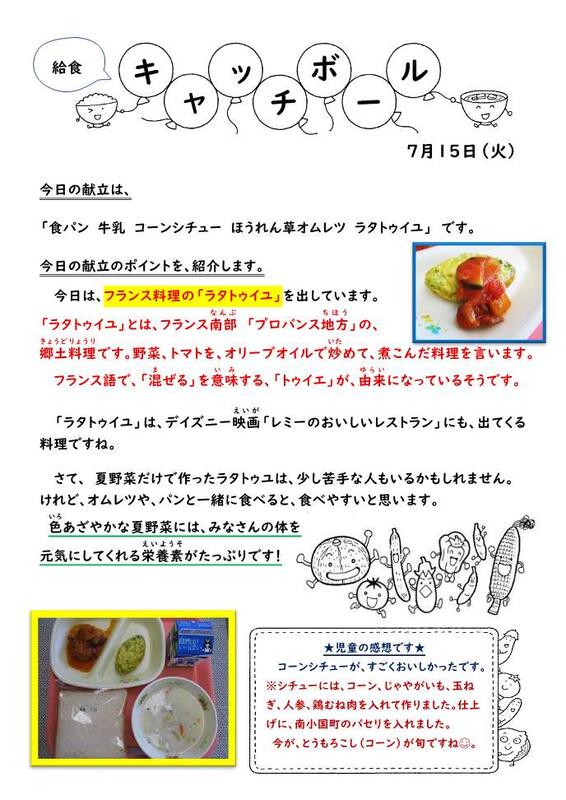 給食
キャッチボール
7月15日(火)
今日の献立は、
「食パン 牛乳 コーンシチュー ほうれん草オムレツ ラタトゥイユ」 です。
今日の献立のポイントを、紹介します。
今日は、フランス料理の「ラタトゥイユ」を出しています。
「ラタトゥイユ」とは、フランス南部 「プロバンス地方」の、
郷土料理です。野菜、トマトを、オリーブオイルで炒めて、煮こんだ料理を言います。
フランス語で、「混ぜる」を意味する、「トゥイユ」が、由来になっているそうです。
「ラタトゥイユ」は、デイズニー映画「レミーのおいしいレストラン」にも、出てくる
料理ですね。
さて、 夏野菜だけで作ったラタトゥユは、少し苦手な人もいるかもしれません。
けれど、オムレツや、パンと一緒に食べると、食べやすいと思います。
色あざやかな夏野菜には、みなさんの体を
元気にしてくれる栄養素がたっぷりです!
★児童の感想です★
コーンシチューが、すごくおいしかったです。
※シチューには、コーン、じゃやがいも、玉ね
ぎ、人参、鶏むね肉を入れて作りました。仕上
げに、南小国町のパセリを入れました。
今が、とうもろこし(コーン)が旬ですね☺。